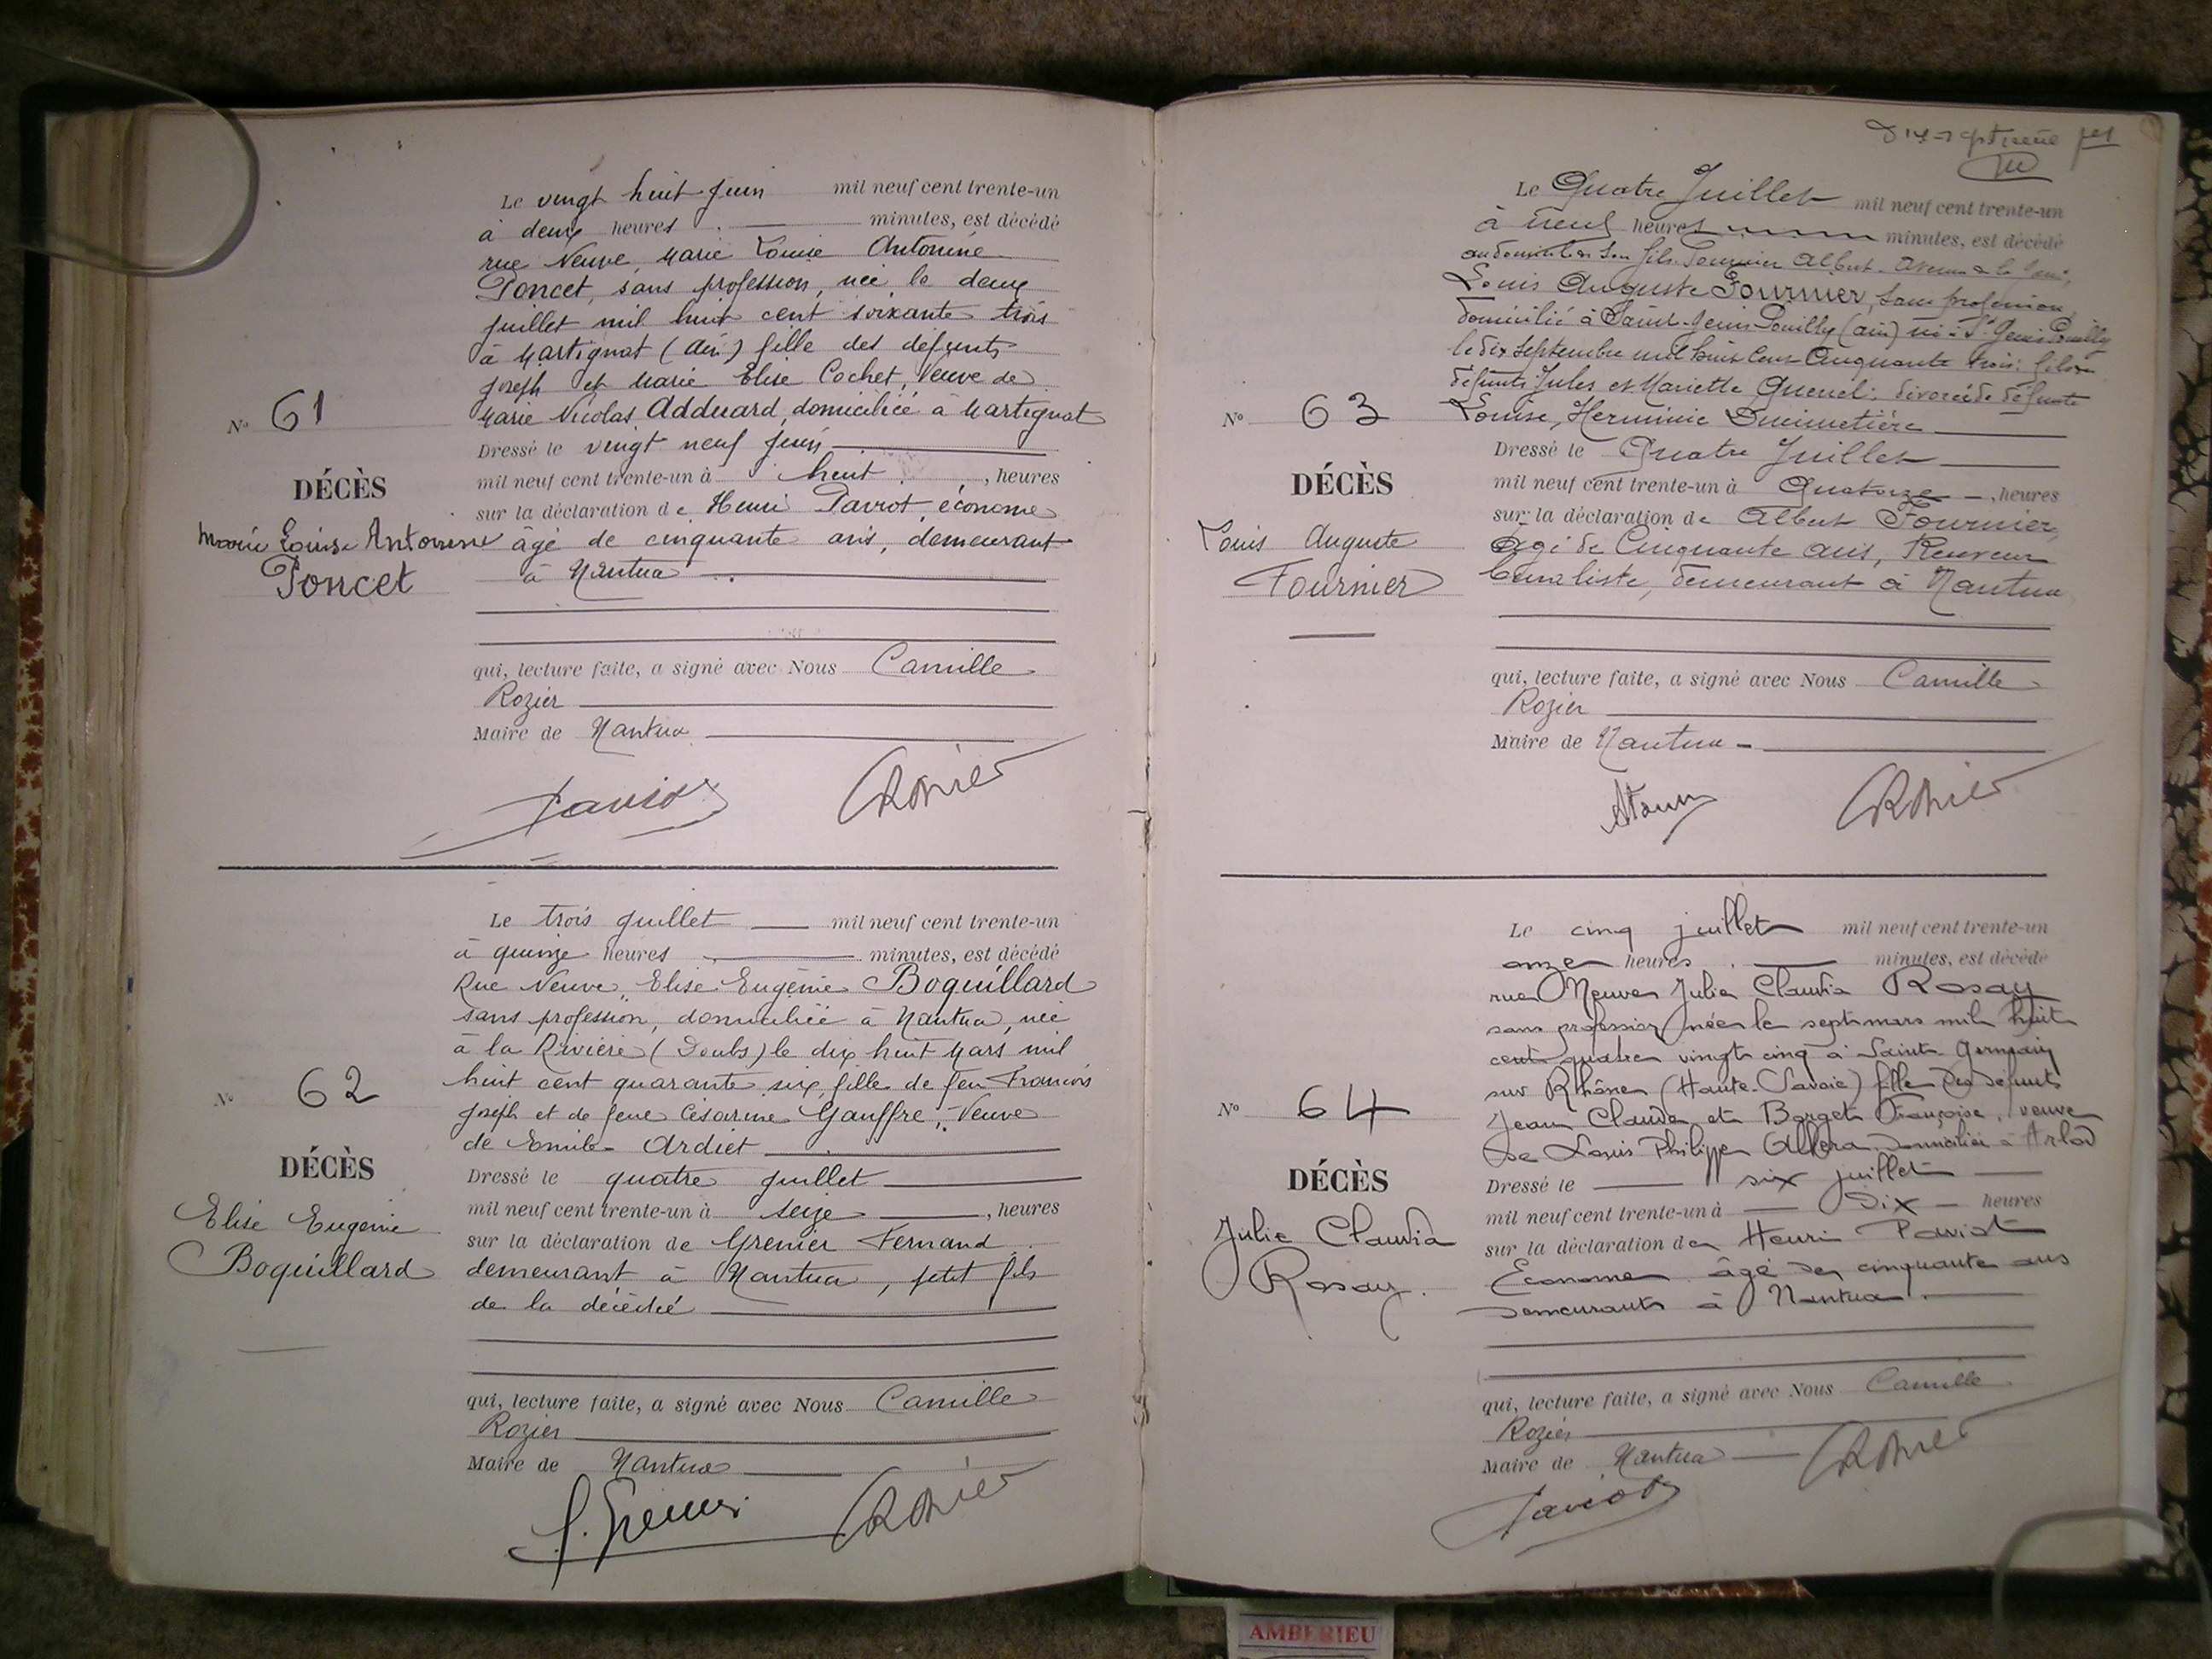 Le vingt huit juin mil neuf cent trente-un
à deux heures minutes, est décédé
rue Neuve, Marie Louise Antonine
Poncet, sans profession, née le deux
juillet mil huit cent soixante trois
à Martignat (Ain) fille des défunts
Joseph et Marie Elise Cochet, Veuve de
Marie Nicolas Adduard, domiciliée à Martignat
N° 61
Dressé le vingt neuf juin
mil neuf cent trente-un à huit, heures
DÉCÈS
sur la déclaration de Henri Paviot, économe
Marie Louise Antonine
Poncet
âgé de cinquante ans, demeurant
à Nantua
qui, lecture faite, a signé avec Nous Camille
Rozier
Maire de Nantua
Paviot
CRozier
Le trois juillet mil neuf cent trente-un
à quinze heures minutes, est décédé
Rue Neuve, Elise Eugénie Boquillard
sans profession, domiciliée à Nantua, née
à la Rivière (Doubs) le dix huit Mars mil
huit cent quarante six, fille de feu François
Joseph et de feue Césarine Gauffre, Veuve
de Emile Ardiet
N° 62
DÉCÈS
Elise Eugénie
Boquillard
Dressé le quatre juillet
mil neuf cent trente-un à seize, heures
sur la déclaration de Grenier Fernand
demeurant à Nantua, petit fils
de la décédée
qui, lecture faite, a signé avec Nous Camille
Rozier
Maire de Nantua
f. Grenier
CRozier
Dix-septième
Le Quatre Juillet mil neuf cent trente-un
à neuf heures minutes, est décédé
au domicile de son fils Fournier Albert. Avenue de la
Louis Auguste Fournier, sans profession,
domicilié à Saint-Genis-Pouilly (ain) né à St Genis Pouilly
le dix Septembre mil huit Cent Cinquante trois; fils de
défunts Jules et Mariette Quenel; divorcé de défunte
Louise, Herminie Dumetière
N° 63
DÉCÈS
Louis Auguste
Fournier
Dressé le Quatre Juillet
mil neuf cent trente-un à Quatorze, heures
sur la déclaration de Albert Fournier,
âgé de Cinquante ans, Receveur
buraliste, demeurant à Nantua
qui, lecture faite, a signé avec Nous Camille
Rozier
Maire de Nantua
CRozier
Le cinq juillet mil neuf cent trente-un
onze heures minutes, est décédé
rue Neuve Julie Claudia Rosay
sans profession née le sept mars mil huit
cent quatre vingt cinq à Saint-Germain
sur Rhône (Haute-Savoie) fille des défunts
Jean Claude et Borget Françoise, veuve
de Louis Philippe domiciliée à Arlod
N° 64
DÉCÈS
Julie Claudia
Rosay.
Dressé le six juillet
mil neuf cent trente-un à Dix heures
sur la déclaration de Henri Paviot
Econome âgé de cinquante ans
demeurant à Nantua.
qui, lecture faite, a signé avec Nous Camille
Rozier
Maire de Nantua
CRozier
Paviot
AMBERIEU